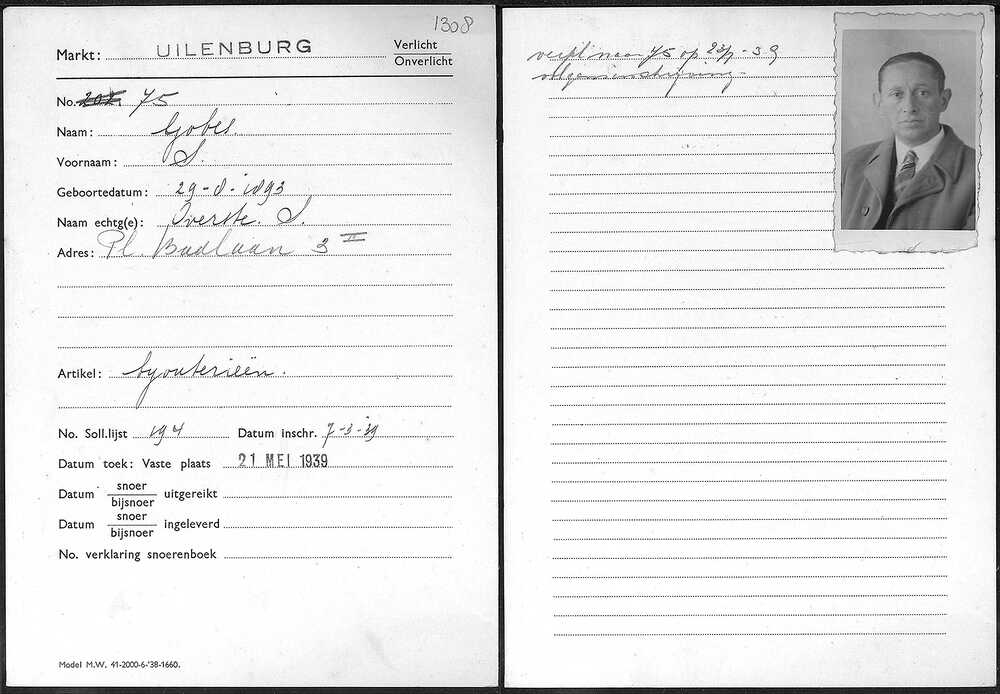 1308
Markt: UILENBURG Verlicht
Onverlicht
No. 202. 75
Naam: Gobes.
Voornaam: S.
Geboortedatum: 29-8-1893
Naam echtg(e): Overste. S.
Adres: Pl. Badlaan 3 II
Artikel: byouterieën.
No. Soll.lijst 194 Datum inschr. 7-3-39
Datum toek: Vaste plaats 21 MEI 1939
Datum snoer
bijsnoer uitgereikt
Datum snoer
bijsnoer ingeleverd
No. verklaring snoerenboek
Model M.W. 41-2000-6-'38-1660.
naar 75 op 23/ -39